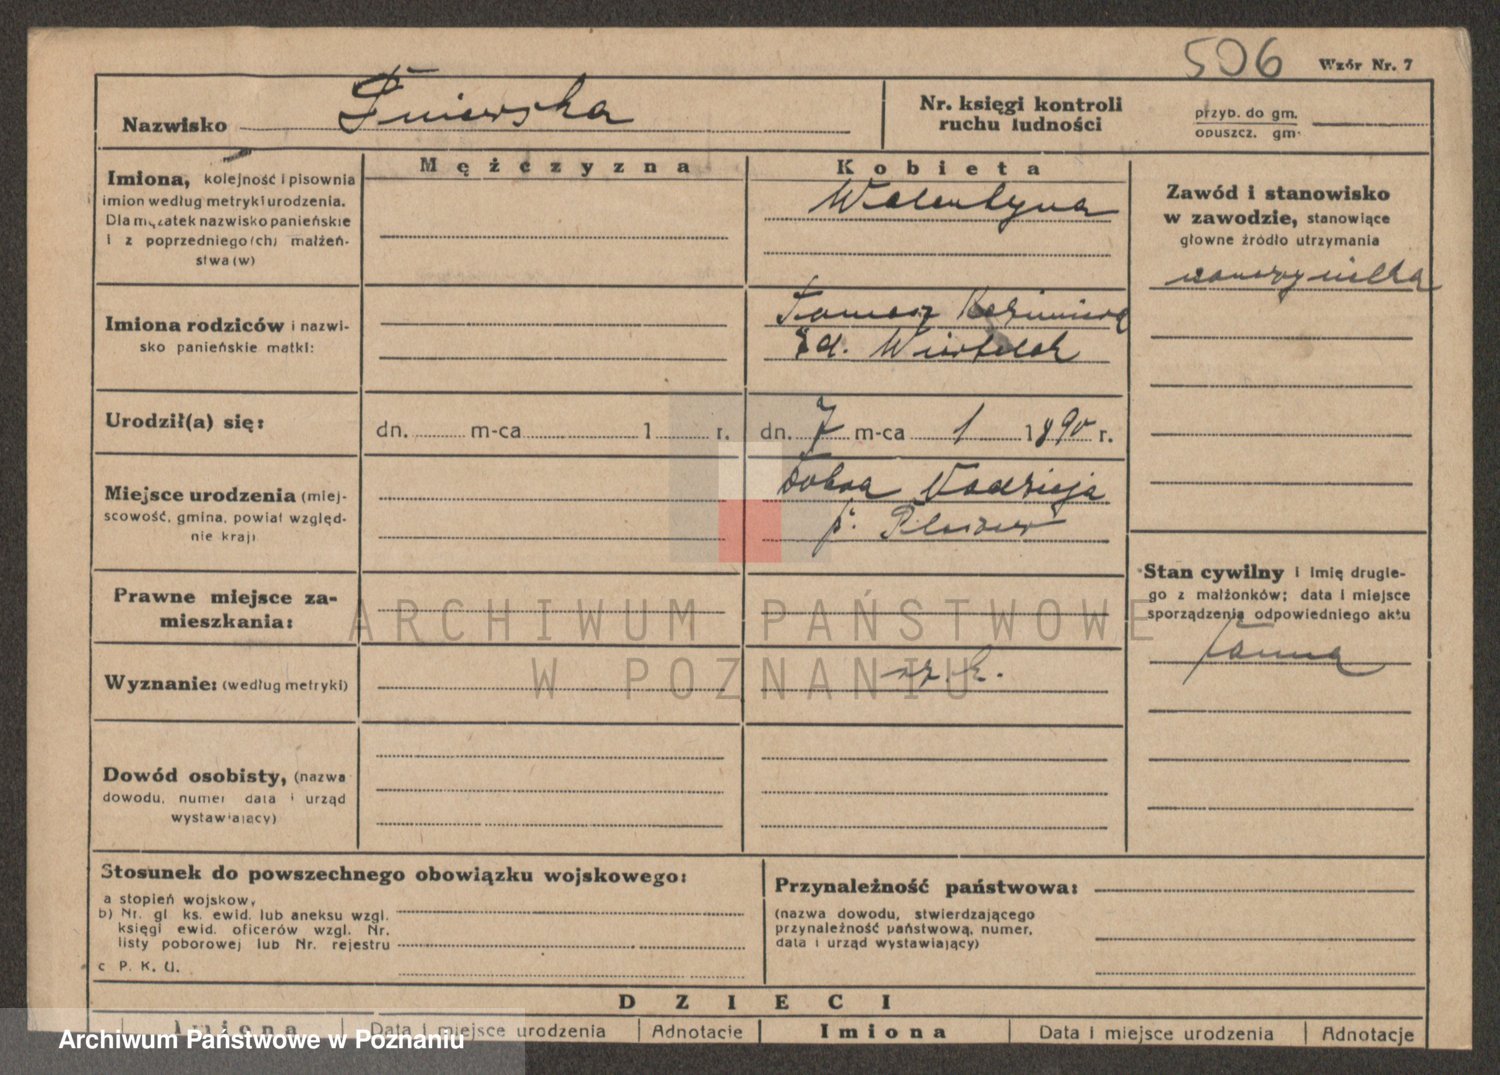 506
Wzór Nr. 7
Nazwisko
Nr. księgi kontroli
ruchu ludności
przyb. do gm.
opuszcz. gm.
Mężczyzna
Kobieta
Imiona, kolejność i pisownia
imion według metryki urodzenia.
Dla mężatek nazwisko panieńskie
i z poprzedniego(ch) małżeń-
stwa(w)
Walentyna
Zawód i stanowisko
w zawodzie, stanowiące
głowne źródło utrzymania
Imiona rodziców i nazwi-
sko panieńskie matki:
Tomasz Kazimiera
Urodził(a) się:
dn. m-ca 1 r.
dn. 7 m-ca 1 1890 r.
Miejsce urodzenia (miej-
scowość, gmina, powiat względ-
nie kraj)
Dobra Nadzieja
p. Pleszew
Prawne miejsce za-
mieszkania:
Stan cywilny i imię drugie-
go z małżonków; data i miejsce
sporządzenia odpowiedniego aktu
panna
Wyznanie: (według metryki)
rz. k.
Dowód osobisty, (nazwa
dowodu, numer data i urząd
wystawiający)
Stosunek do powszechnego obowiązku wojskowego:
a stopień wojskow,
b) Nr. gl ks. ewid. lub aneksu wzgl.
księgi ewid. oficerów wzgl. Nr.
listy poborowej lub Nr. rejestru
c P. K. U.
Przynależność państwowa:
(nazwa dowodu, stwierdzającego
przynależność państwową, numer,
data i urząd wystawiający)
DZIECI
Imiona Data i miejsce urodzenia Adnotacie Imiona Data i miejsce urodzenia Adnotacje
ARCHIWUM PAŃSTWOWE
W POZNANIU
Archiwum Państwowe w Poznaniu